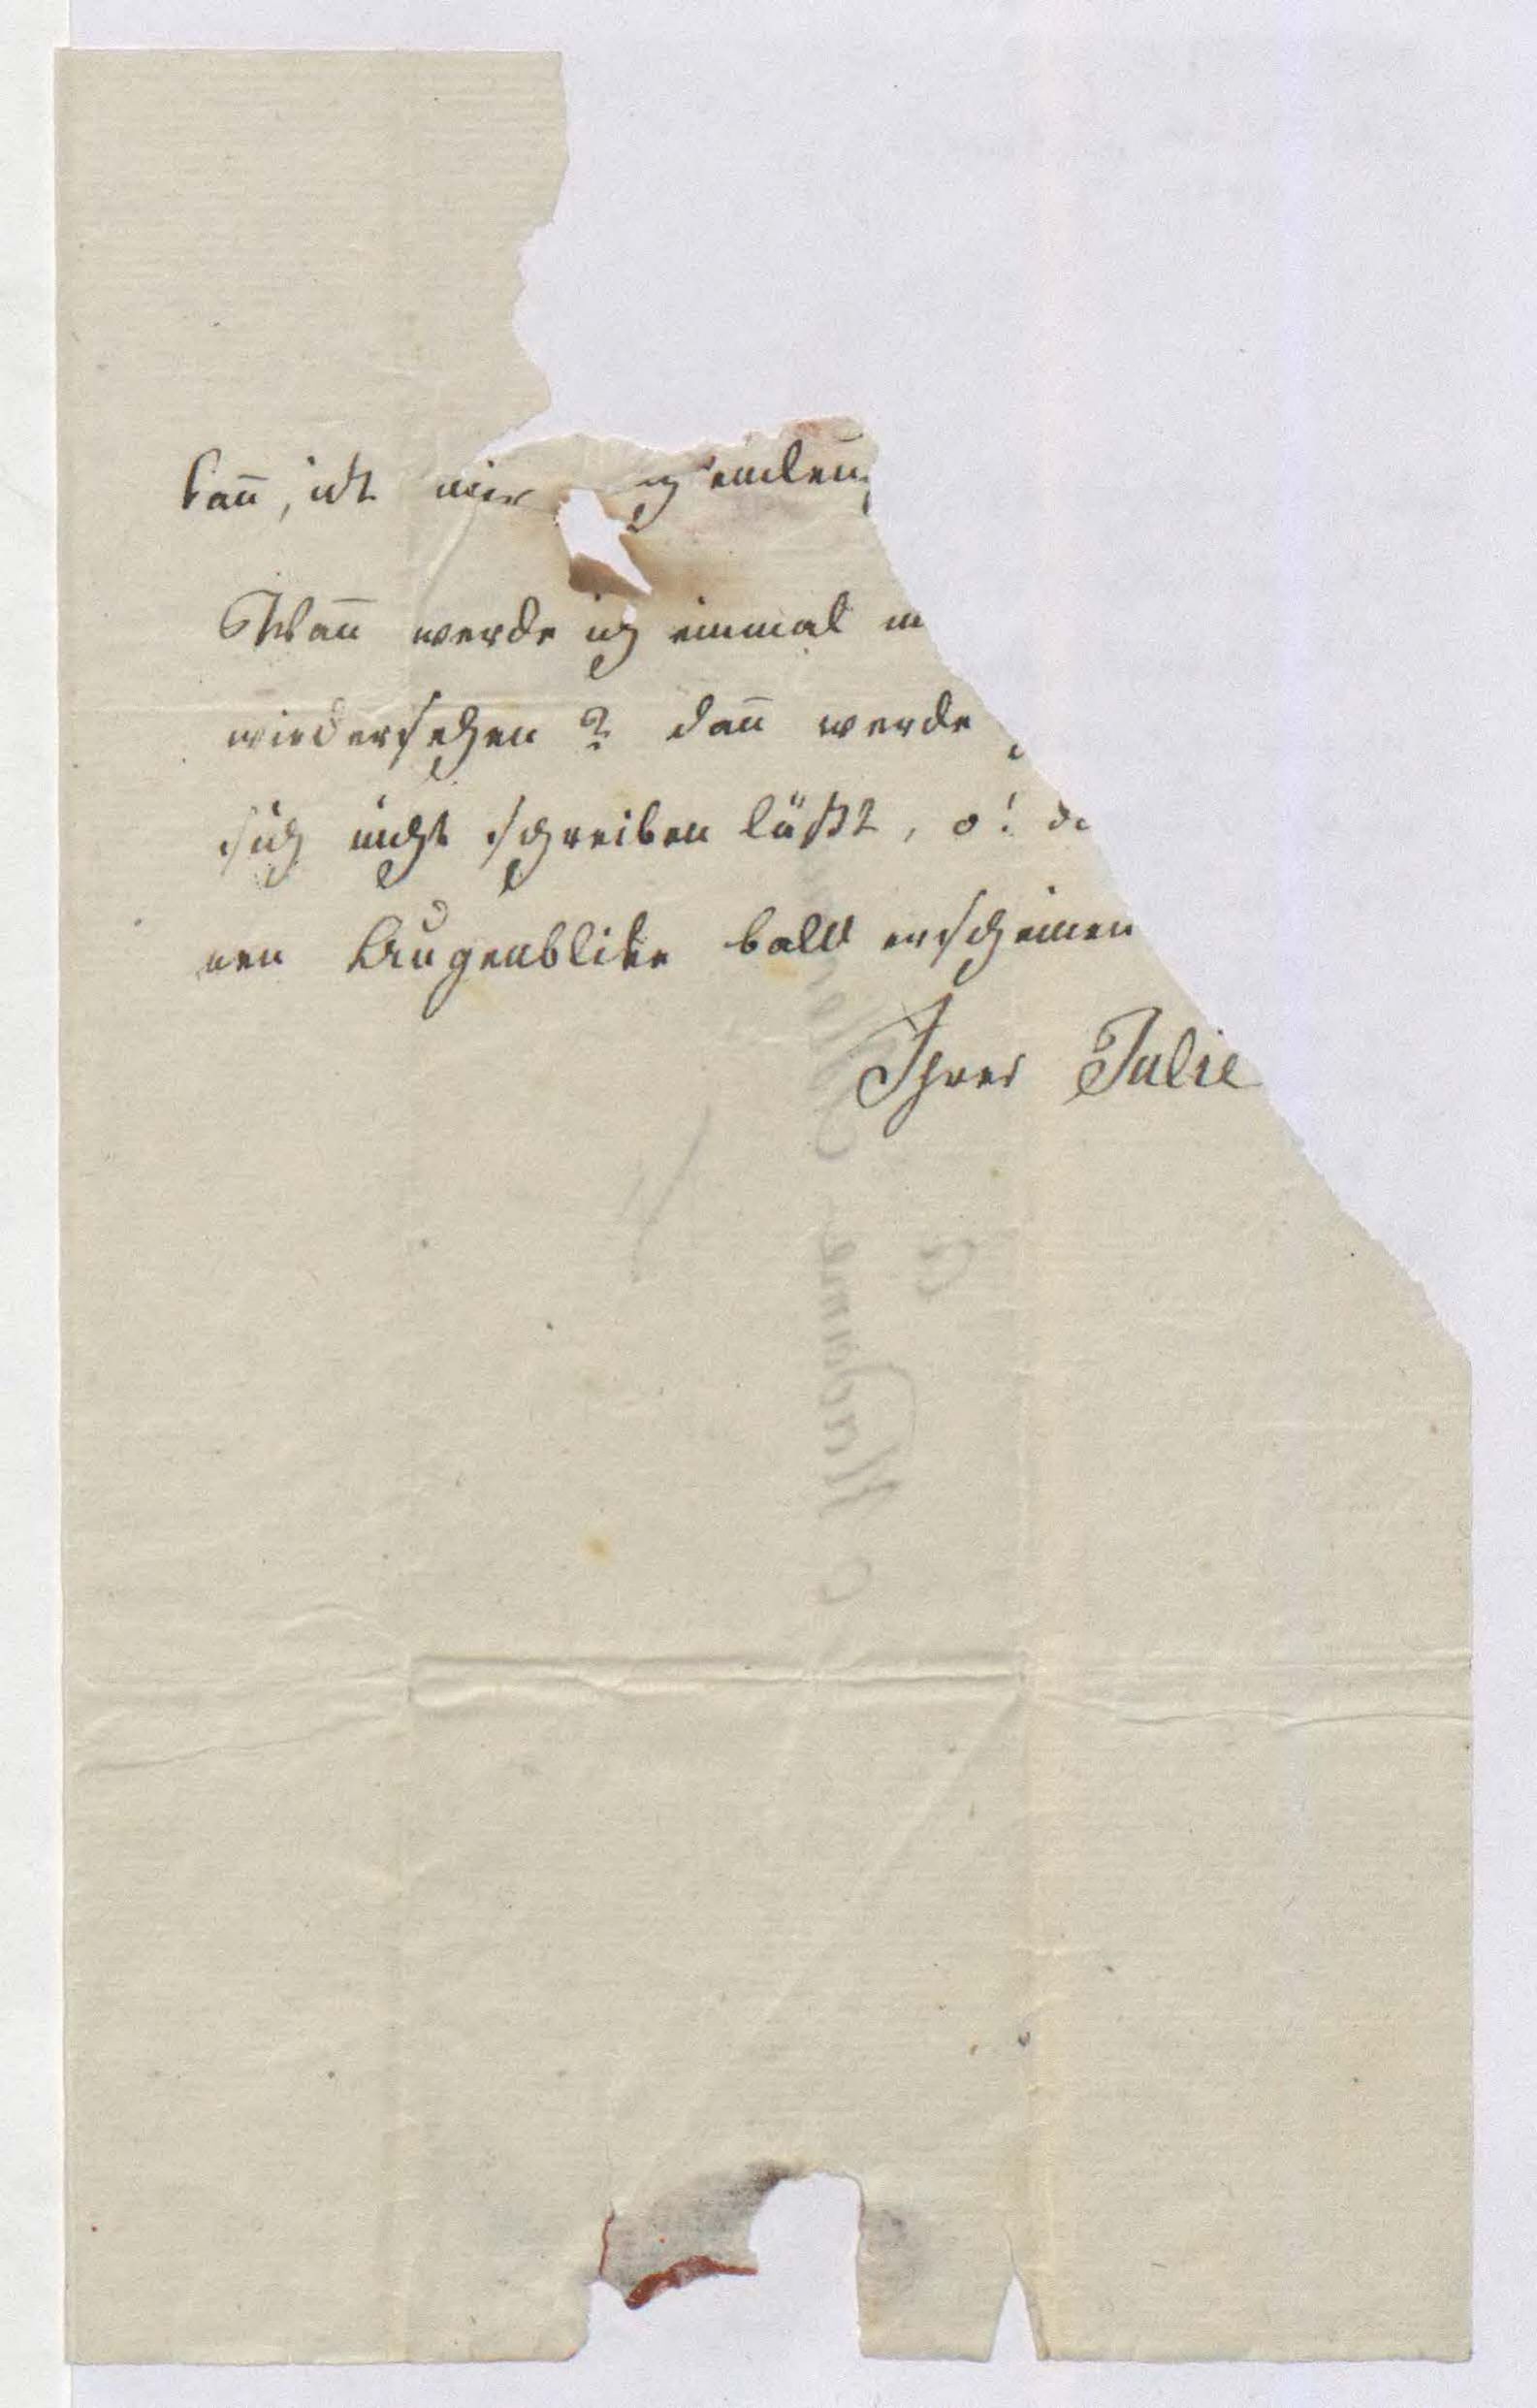 kan̄, ist mir
Wan̄ werde ich einmal m
wiedersehen? dan̄ werde
sich nicht schreiben läßt, o! da
nen Augenblike bald erscheinen
Ihrer Julie